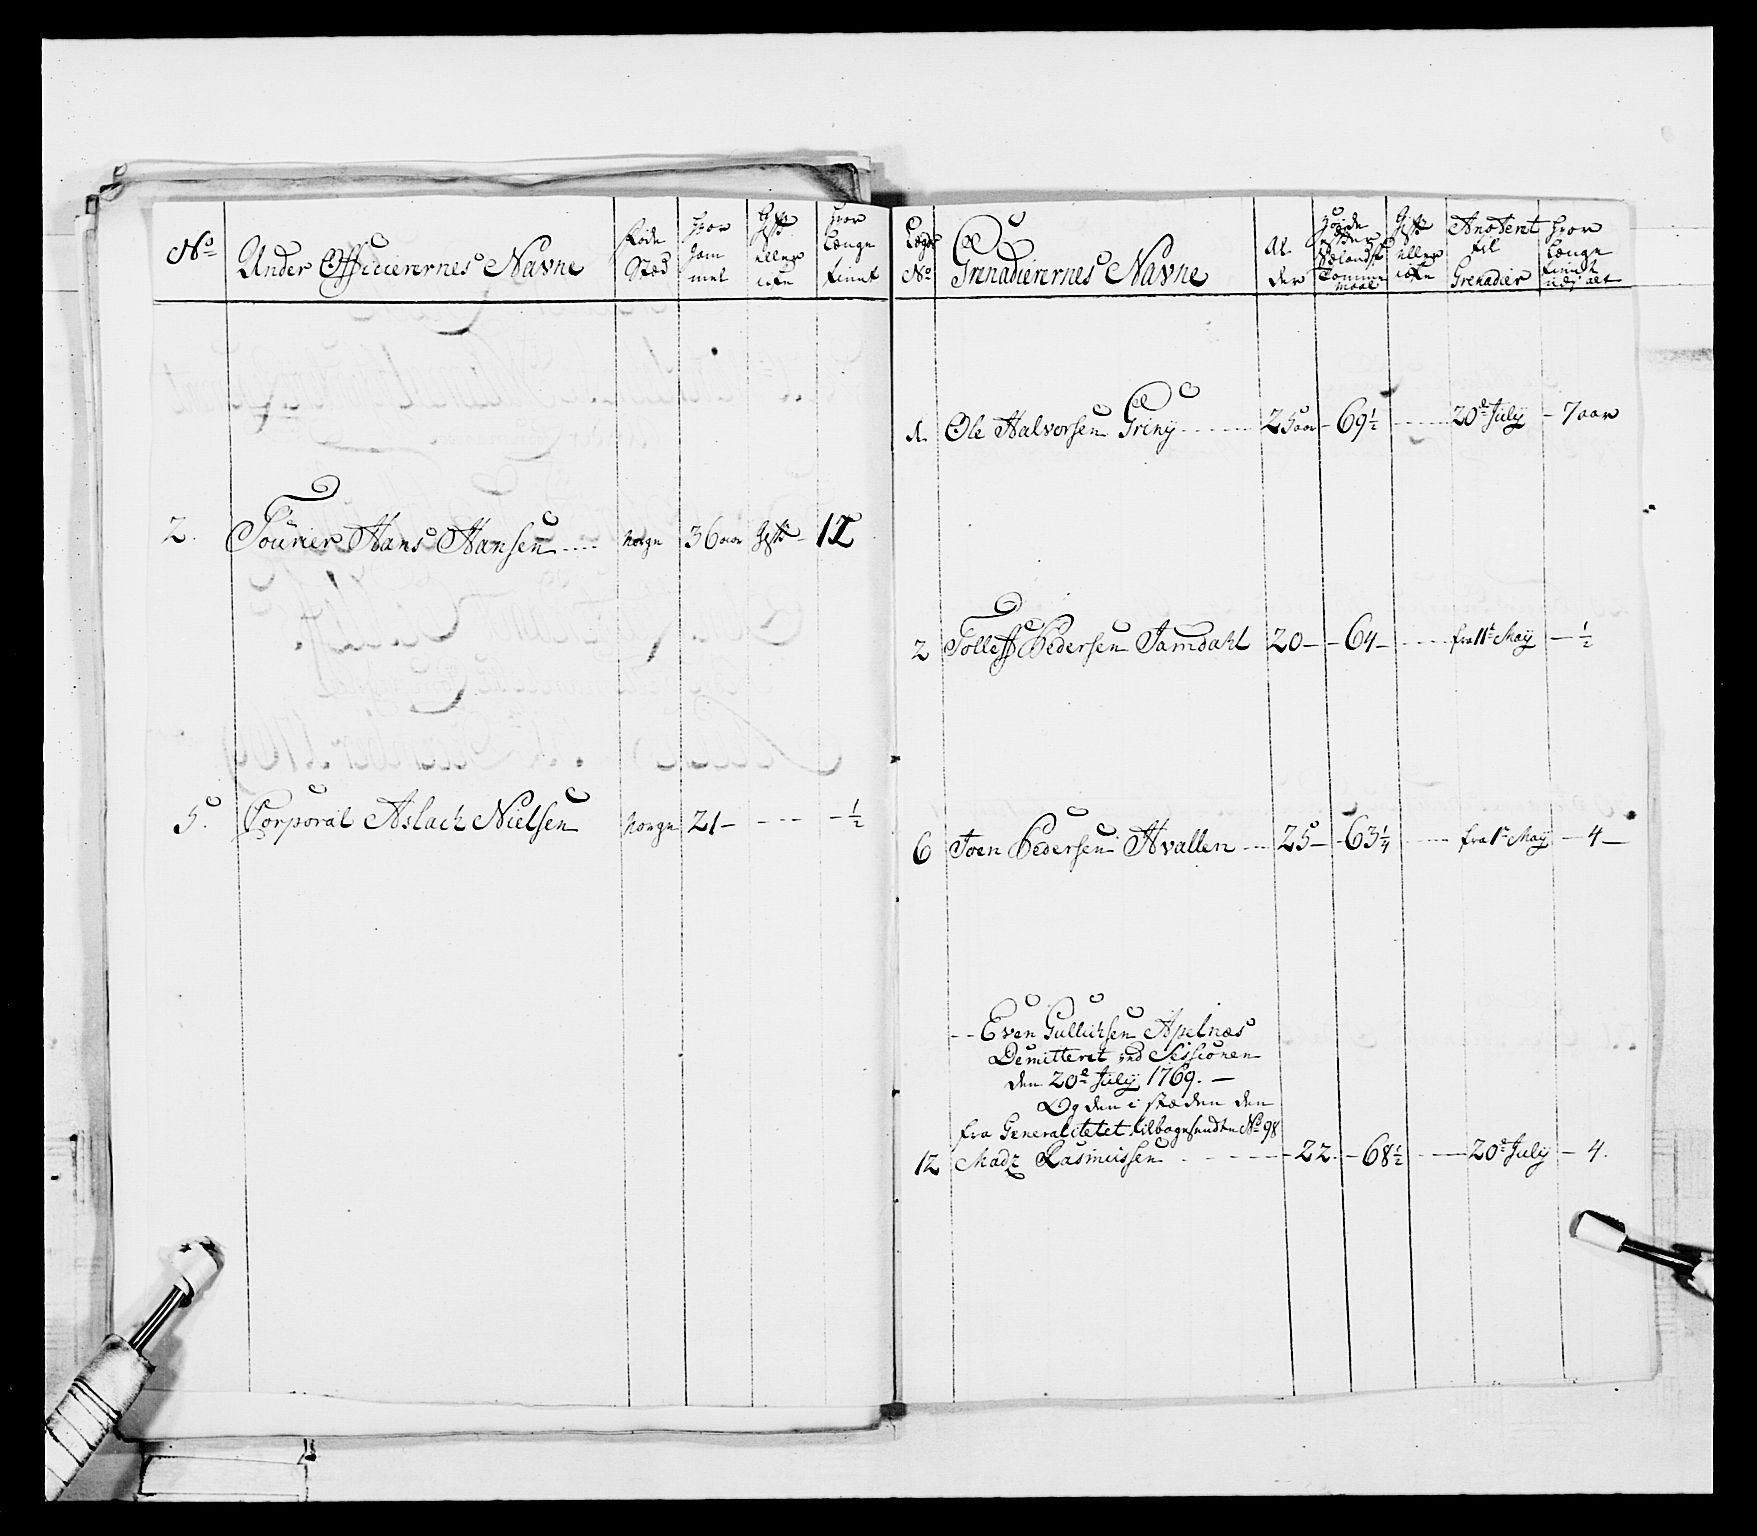 No
Under Officierernes Navne
Føde Stæd
Hvor gam mel
Gift eller icke
Hvor længe tient
2. Fourier Hans Hansen norge 36 aar gift 12
5. Corporal Aslach Nielsen norge 21 — ½
Lægds No
Grenadierernes Navne
Al der
Høide efter Sælandsk Tomme maal
Gift eller icke
Anoteret til Grenadier
Hvor længe tient udj alt
1. Ole Halvorsen Griny 25 aar 69½ 20de July 7 aar
2 Tolleff Pedersen Jamdahl 20 64 fra 11t May ½
6 Joen Pedersen Hvallen 25 63¼ fra 1t May 4
Even Gullichsen Apelnæs
Demitteret ved Sessionen
den 20de July 1769.
Og den i stæden den
fra Generalitetet tilbagesendte No 98
12 Madz Rasmussen 22. 68½ 20de July 4.